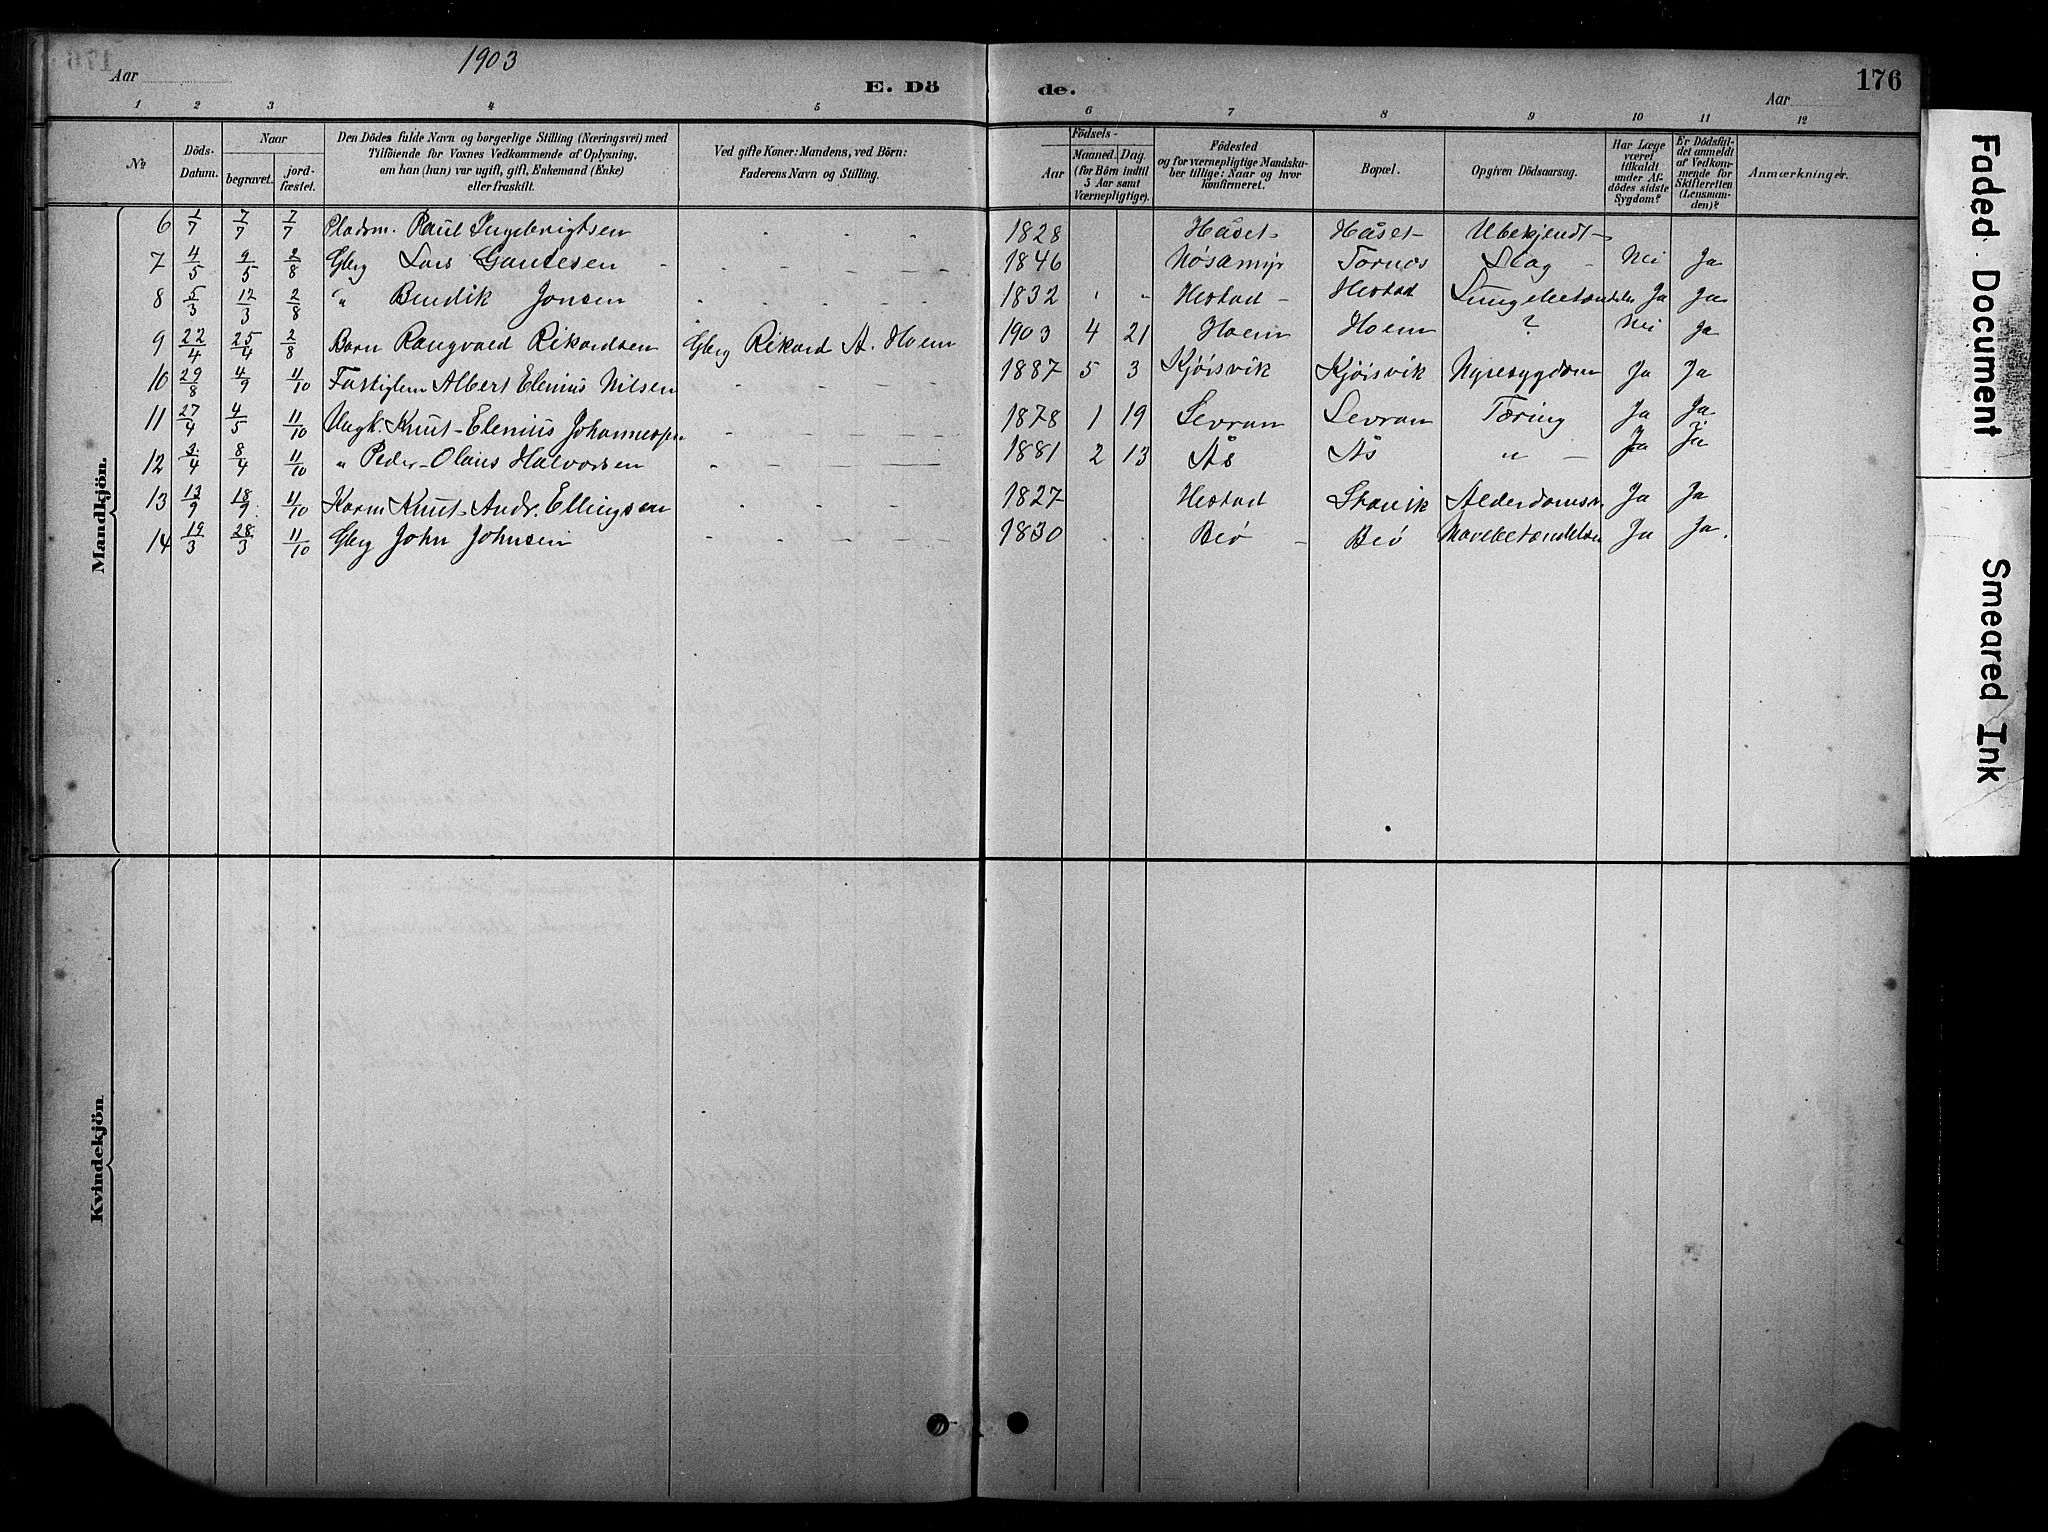 176
Aar 1903
E. Dö
de.
Aar
1 2 3 4 5 6 7 8 9 10 11 12
No
Döds-Datum.
Naar
begravet.
jord-fæstet.
Den Dödes fulde Navn og borgerlige Stilling (Næringsvei) med
Tilföiende for Voxnes Vedkommende af Oplysning,
om han (hun) var ugift, gift, Enkemand (Enke)
eller fraskilt.
Ved gifte Koner: Mandens, ved Börn:
Faderens Navn og Stilling.
Födsels-
Aar
Maaned. Dag.
(for Börn indtil
5 Aar samt
Værnepligtige).
Födested
og for værnepligtige Mandska-
ber tillige: Naar og hvor
konfirmeret.
Bopæl.
Opgiven Dödsaarsag.
Har Læge
været
tilkaldt
under Af-
dödes sidste
Sygdom?
Er Dödsfal-
det anmeldt
af Vedkom-
mende for
Skifteretten
(Lensman-
den)?
Anmærkninger.
Mandkjön.
6 1/7 7/7 7/7 Pladsm. Paul Ingebrigtsen 1828 Håset Håset Ubekjendt
7 4/5 9/5 2/8 Gbrg Lars Gautesen 1846 Nøsamyr Tornes Slag Nei Ja
8 5/3 12/3 2/8 " Bendik Jonsen 1832 Hestad Hestad Lungebetændelse Ja Ja
9 22/4 25/4 2/8 Barn Rangvald Rikardsen Gbrg Rikard A. Hoem 1903 4 21 Hoem Hoem ? Nei Ja
10 29/8 4/9 11/10 Albert Elenius Nilsen 1887 5 3 Kjørsvik Kjørsvik Nyresygdom Ja Ja
11 27/4 4/5 11/10 Ungk. Knut Elenius 1878 1 19 Sevran Sevran Tæring Ja Ja
12 3/4 8/4 11/10 " Peder Olaus Halvorsen 1881 2 13 Ås Ås " Ja Ja
13 12/9 18/9 11/10 Knut Andr. Ellingsen 1827 Hestad Alderdomssv. Ja Ja
14 19/3 28/3 11/10 Gbrg John Johnsen 1830 Bø Bø Mavebetændelse Ja Ja.
Kvindekjön.
Faded Document
Smeared Ink